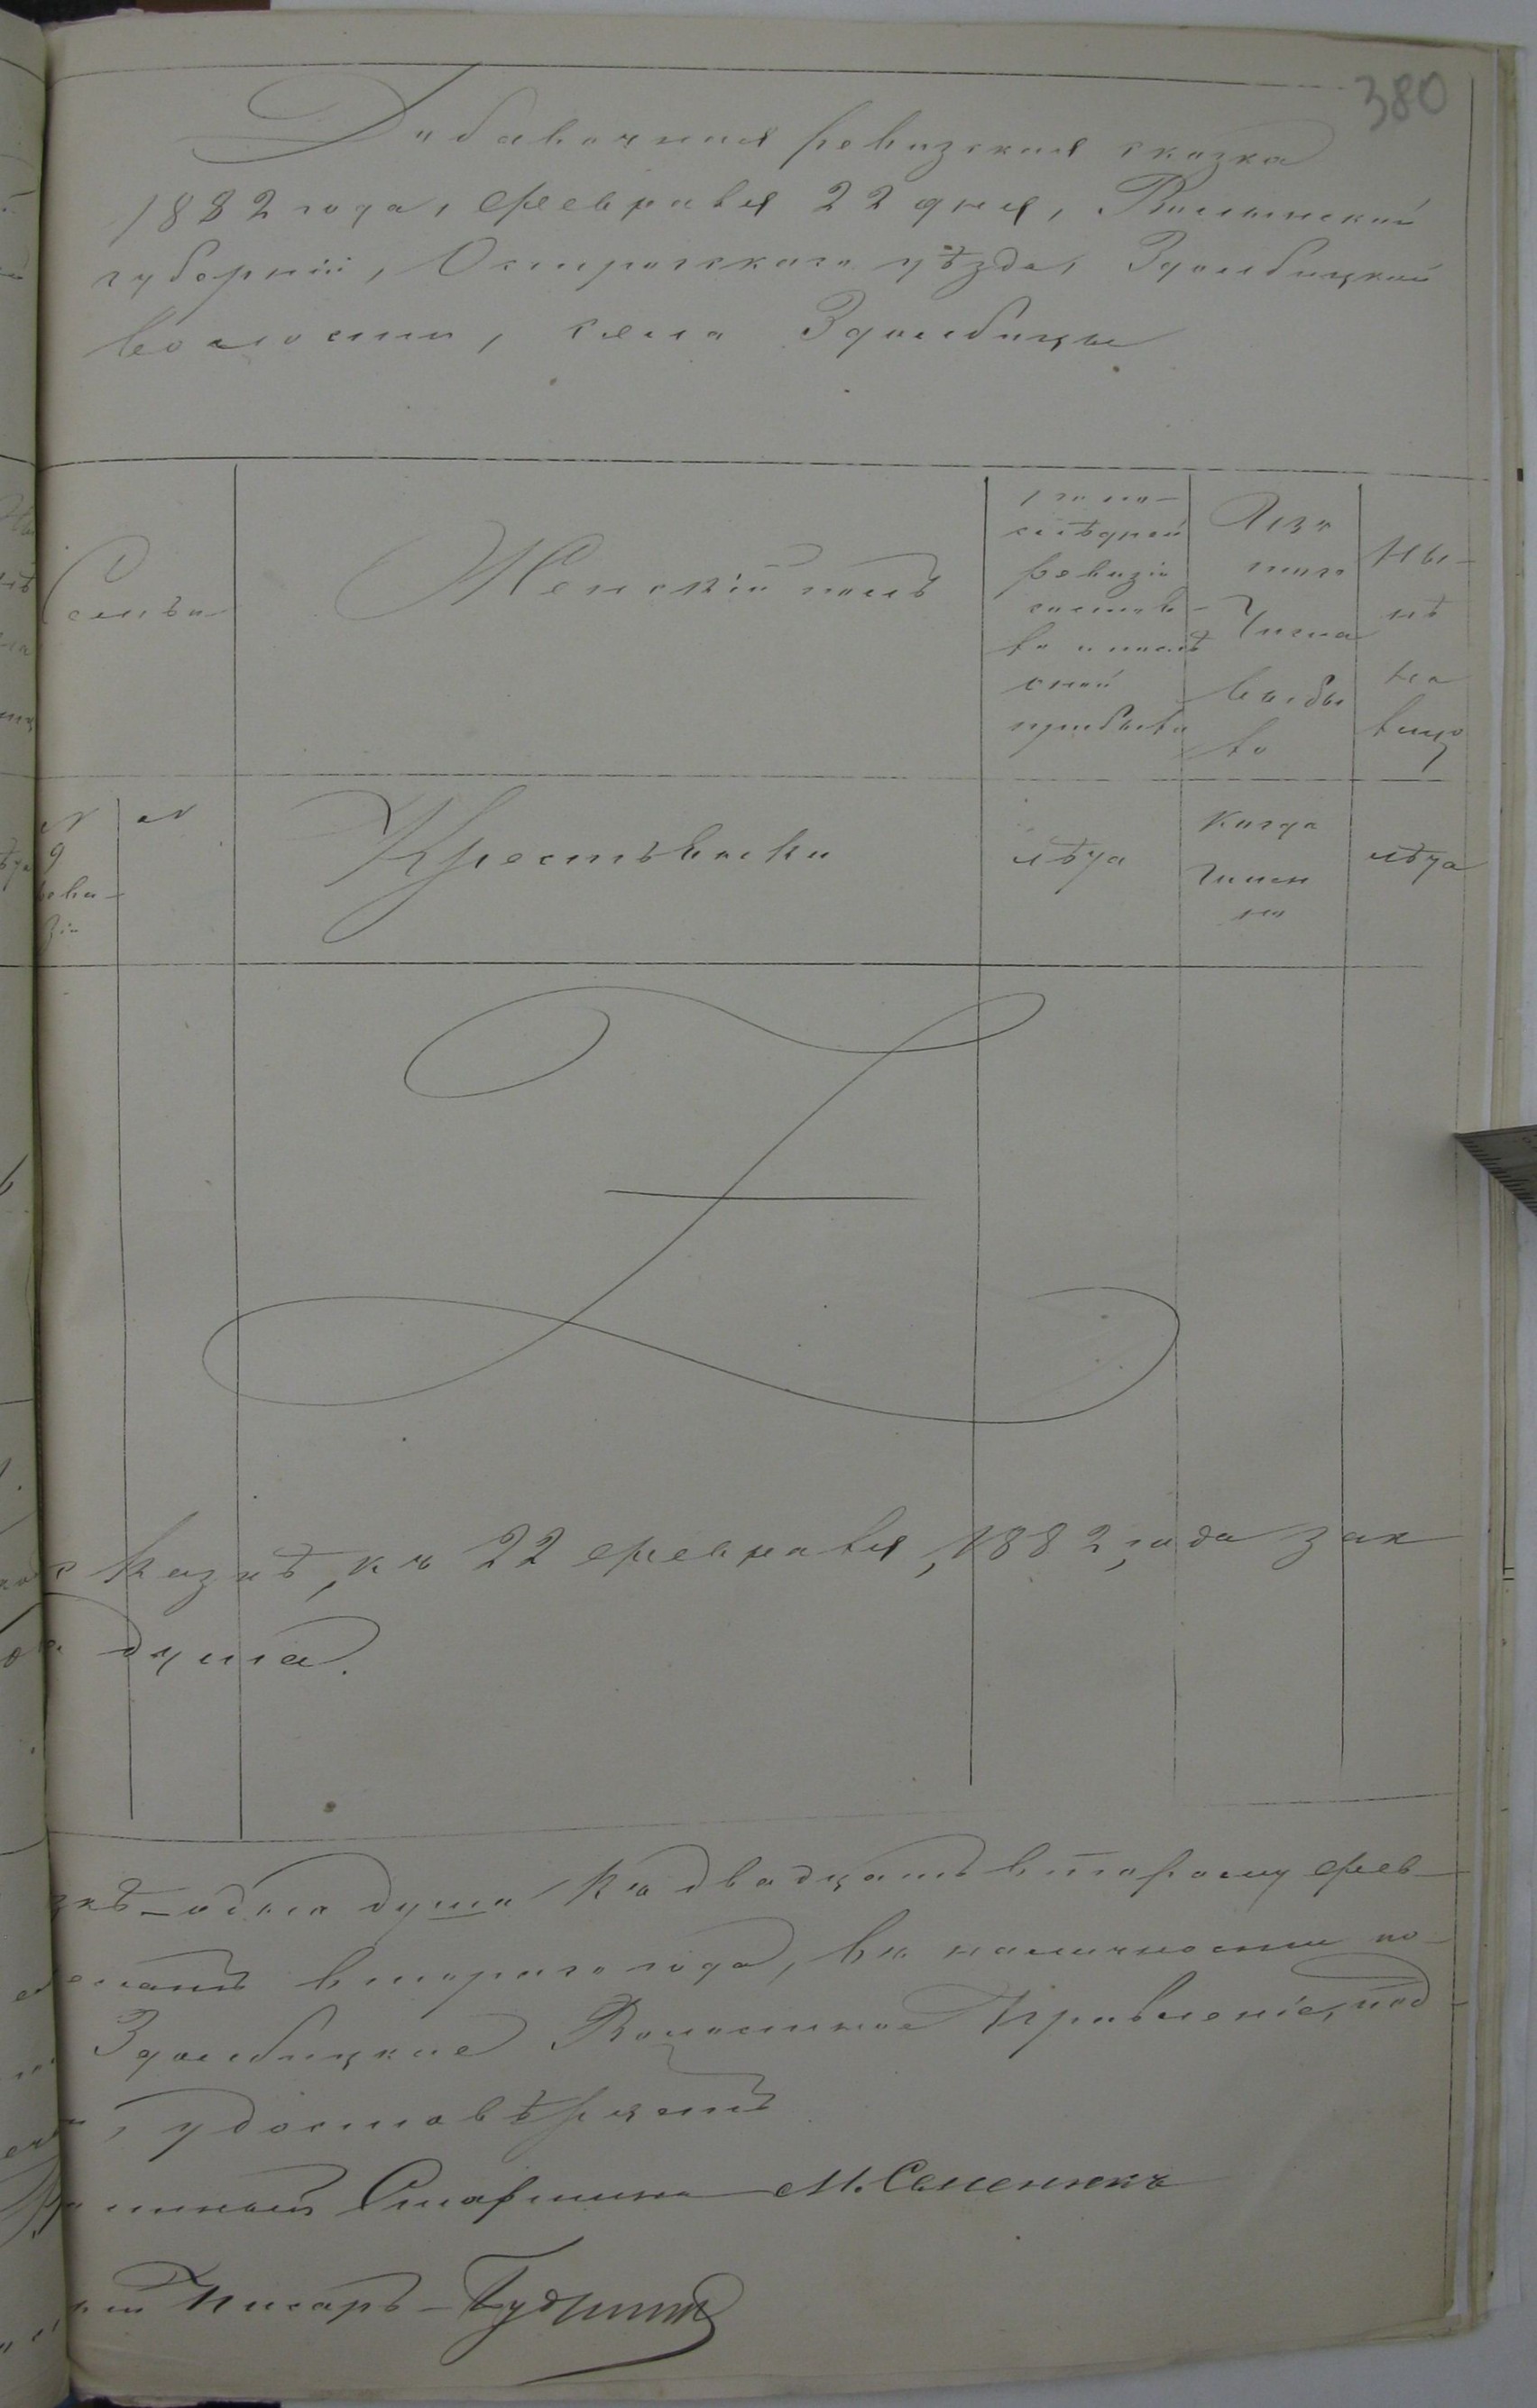 380
Добавочная ревизская сказка
1882 года, февраля 22 дня, Волынской
губернии, Острожскаго уѣзда, Здолбицкой
волости, села Здолбицы
Семьи
Женскій полъ
по по-
слѣдней
ревизіи
состоя-
ло и послѣ
оной
прибыло
Изъ
того
числа
выбы
ло
Ны-
нѣ
на
лицо
№
9
реви-
зіи
№
Крестьянки
лѣта
когда
имен
но
лѣта
казнѣ, къ 22 февраля, 1882, года зак
душа.
зкѣ - одна душа къ двадцать второму фев-
второго года, въ наличности по-
Здолбицкое Волостное Правленіе, под-
, удостовѣряетъ
Старшина М. Семенюкъ
Писарь -